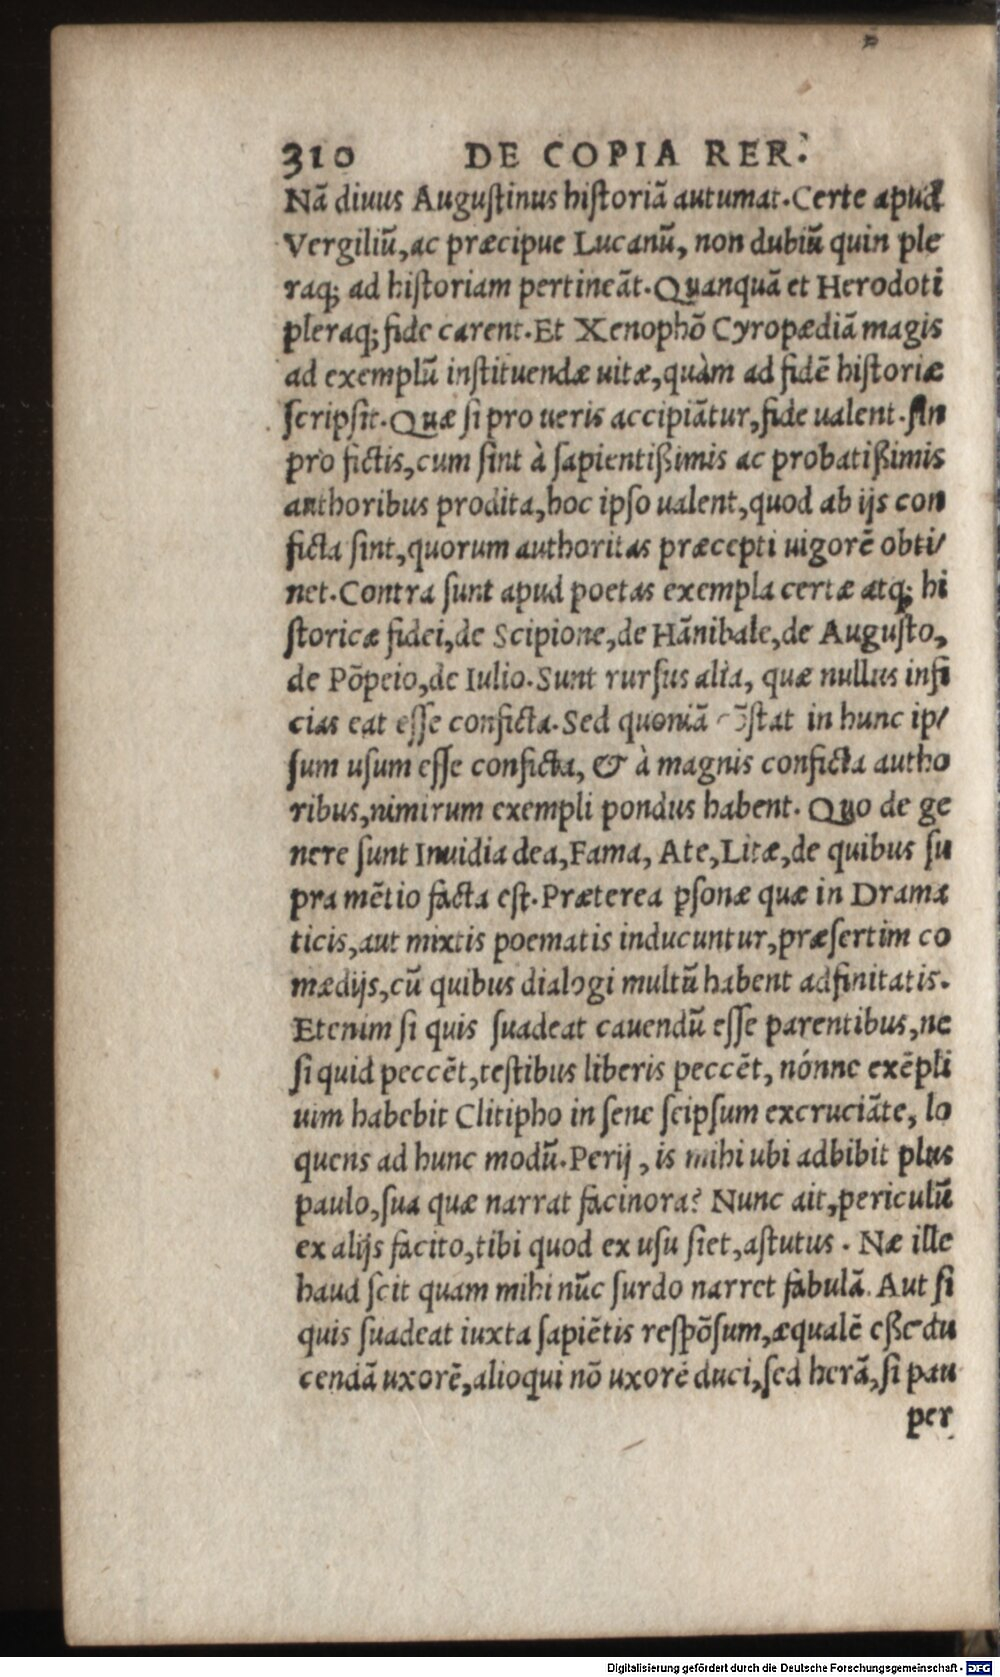 310 DE COPIA RER.
Nã diuus Auguſtinus hiſtoriã autumat. Certe apud
Vergiliũ, ac præcipue Lucanũ, non dubiũ quin ple
raq; ad hiſtoriam pertineãt. Quanquã et Herodoti
pleraq; fide carent. Et Xenophõ Cyropædiã magis
ad exemplũ inſtituendæ uitæ, quàm ad fidẽ hiſtoriæ
ſcripſit. Quæ ſi pro ueris accipiãtur, fide ualent. An
pro fictis, cum ſint à ſapientißimis ac probatißimis
authoribus prodita, hoc ipſo ualent, quod ab ijs con
ficta ſint, quorum authoritas præcepti uigorẽ obti/
net. Contra ſunt apud poetas exempla certæ atq; hi
ſtoricæ fidei, de Scipione, de Hãnibale, de Auguſto,
de Põpeio, de Iulio. Sunt rurſus alia, quæ nullus infi
cias eat eſſe conficta. Sed quoniã cõſtat in hunc ip/
ſum uſum eſſe conficta, & à magnis conficta autho
ribus, nimirum exempli pondus habent. Quo de ge
nere ſunt Inuidia dea, Fama, Ate, Litæ, de quibus ſu
pra mẽtio facta eſt. Præterea ꝑſonæ quæ in Drama
ticis, aut mixtis poematis inducuntur, præſertim co
mœdijs, cũ quibus dialogi multũ habent adfinitatis.
Etenim ſi quis ſuadeat cauendũ eſſe parentibus, ne
ſi quid peccẽt, teſtibus liberis peccẽt, nónne exẽpli
uim habebit Clitipho in ſene ſeipſum excruciãte, lo
quens ad hunc modũ. Perij, is mihi ubi adbibit plus
paulo, ſua quæ narrat facinora? Nunc ait, periculũ
ex alijs facito, tibi quod ex uſu ſiet, aſtutus. Næ ille
haud ſcit quam mihi nũc ſurdo narret fabulã. Aut ſi
quis ſuadeat iuxta ſapiẽtis reſpõſum, æqualẽ eße du
cendã uxorẽ, alioqui nõ uxorẽ duci, ſed herã, ſi pau
per
Digitalisierung gefördert durch die Deutsche Forschungsgemeinschaft - DFG